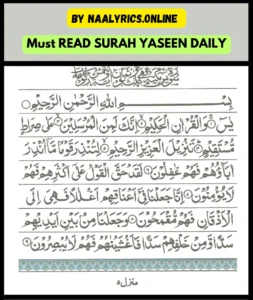 BY NAALYRICS.ONLINE
Must READ SURAH YASEEN DAILY
بِسْــــمِ اللهِ الرَّحْمٰنِ الرَّحِيْمِ
يٰسٓ ۚ وَالْقُرْاٰنِ الْحَكِيْمِ ۙ اِنَّكَ لَمِنَ الْمُرْسَلِيْنَ ۙ عَلٰى صِرَاطٍ
مُّسْتَقِيْمٍ ؕ تَنْزِيْلَ الْعَزِيْزِ الرَّحِيْمِ ۙ لِتُنْذِرَ قَوْمًا مَّاۤ اُنْذِرَ
اٰبَآؤُهُمْ فَهُمْ غٰفِلُوْنَ ۞ لَقَدْ حَقَّ الْقَوْلُ عَلٰۤى اَكْثَرِهِمْ فَهُمْ
لَا يُؤْمِنُوْنَ ۞ اِنَّا جَعَلْنَا فِيْۤ اَعْنَاقِهِمْ اَغْلٰلًا فَهِيَ اِلَى
الْاَذْقَانِ فَهُمْ مُّقْمَحُوْنَ ۞ وَجَعَلْنَا مِنْۢ بَيْنِ اَيْدِيْهِمْ
سَدًّا وَّمِنْ خَلْفِهِمْ سَدًّا فَاَغْشَيْنٰهُمْ فَهُمْ لَا يُبْصِرُوْنَ ۞
منزل ٥